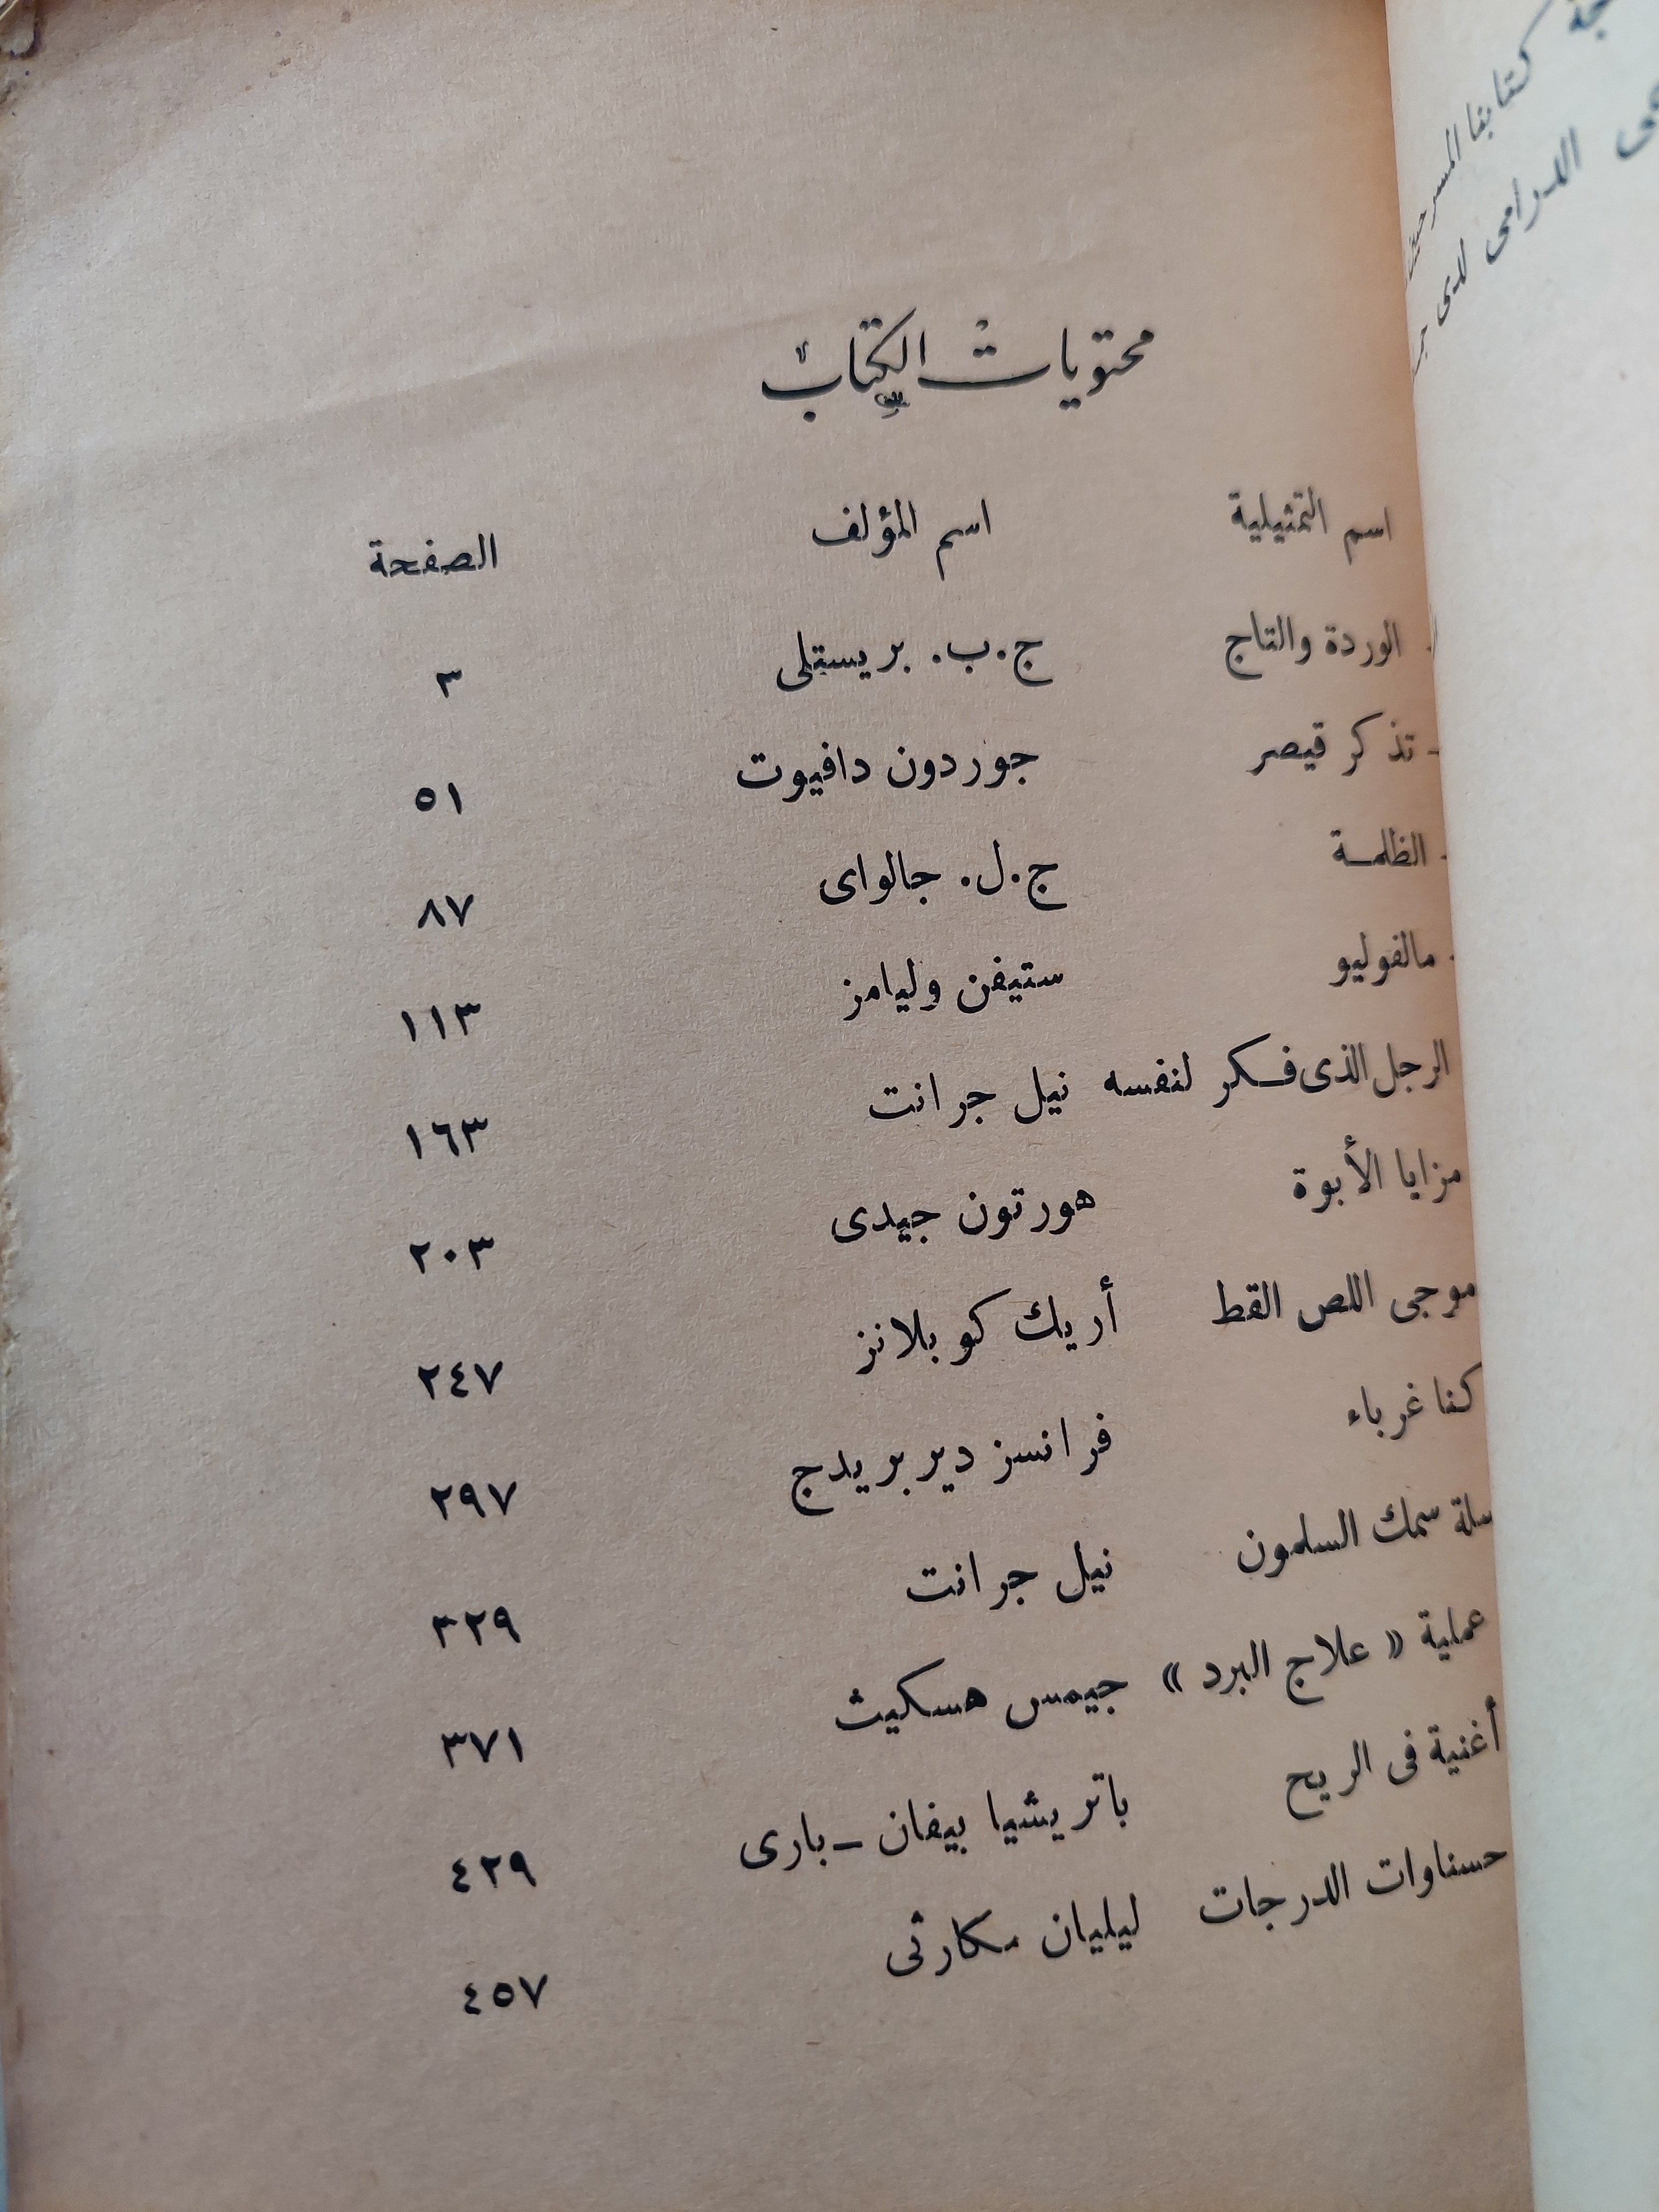 محتويات الكتاب
اسم التمثيلية اسم المؤلف الصفحة
الوردة والتاج ج.ب. بريستلى ٣
- تذكر قيصر جوردون دافيوت ٥١
- الظلمة ج.ل. جالواى ٨٧
- مالفوليو ستيفن وليامز ١١٣
الرجل الذى فكر لنفسه نيل جرانت ١٦٣
مزايا الأبوة هورتون جيدى ٢٠٣
موجى اللص القط أريك كوبلانز ٢٤٧
كنا غرباء فرانسز ديربريدج ٢٩٧
سلة سمك السلمون نيل جرانت ٣٢٩
عملية « علاج البرد » جيمس هسكيث ٣٧١
أغنية فى الريح باتريشيا بيفان - بارى ٤٢٩
حسناوات الدرجات ليليان مكارثى ٤٥٧
كتابنا المسرحيين
الدرامى لدى